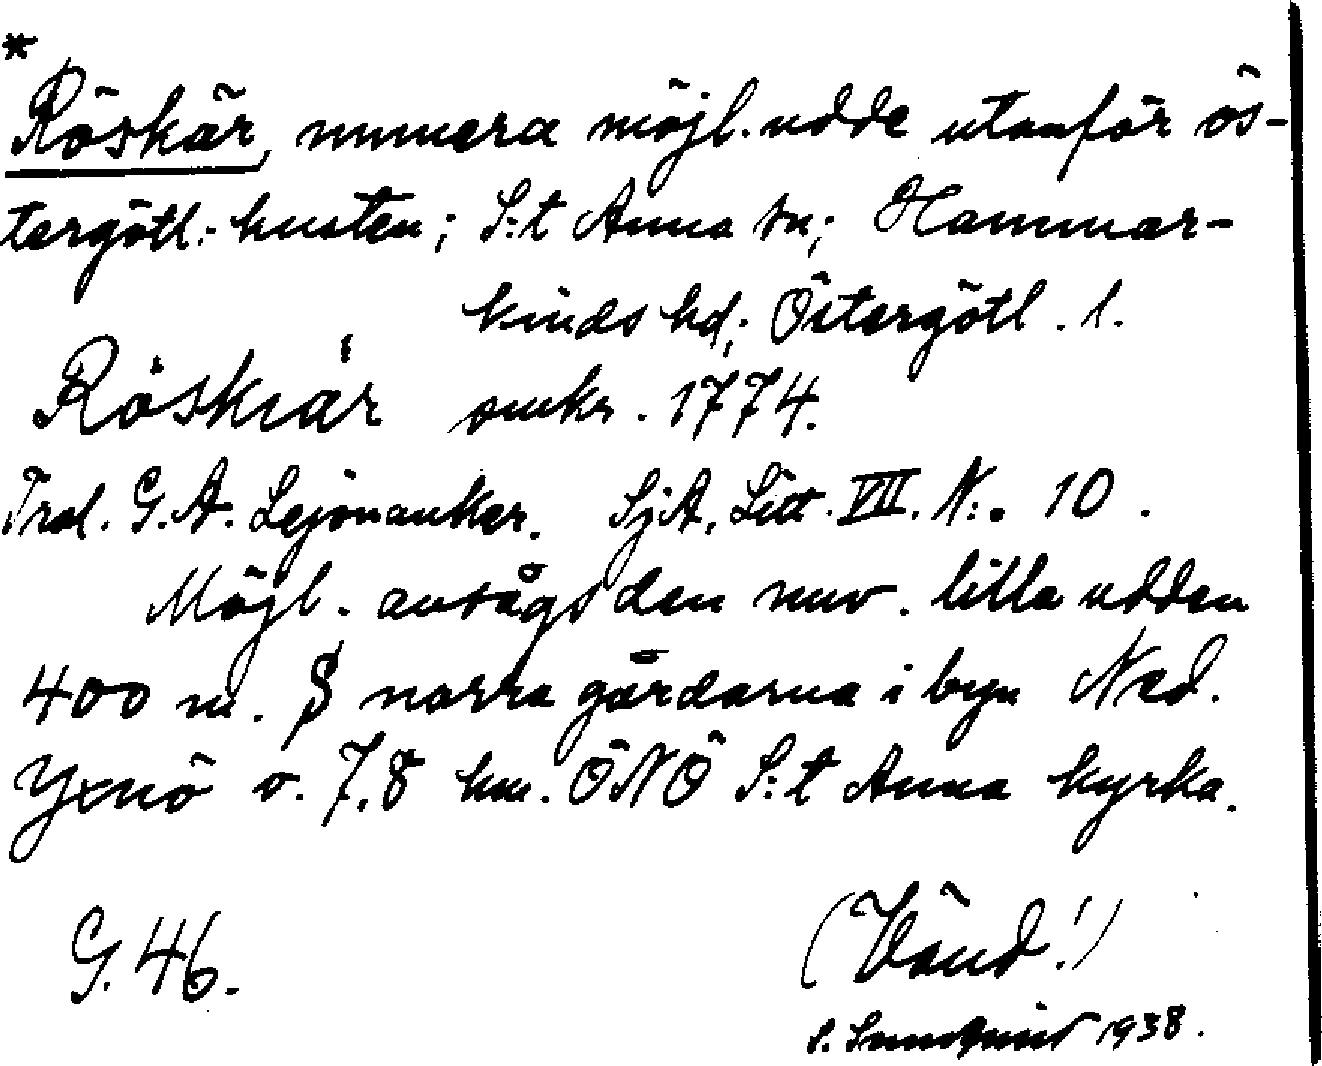 *
Röskär, numera möjl. udde utanför ös-
tergötl.-kusten; S:t Anna sn; Hammar-
kinds hd; Östergötl. l.
Röskiär omkr. 1774.
Trol. G. A. Lejonanker. SjA, Litt. VII. N:o 10.
Möjl. avsågs den nuv. lilla udden
400 m. S norra gårdarna i byn Ned.
Yxnö o. 7,8 km. ÖNÖ S:t Anna kyrka.
G. 46.
(Vänd!)
S. Sundqvist 1938.